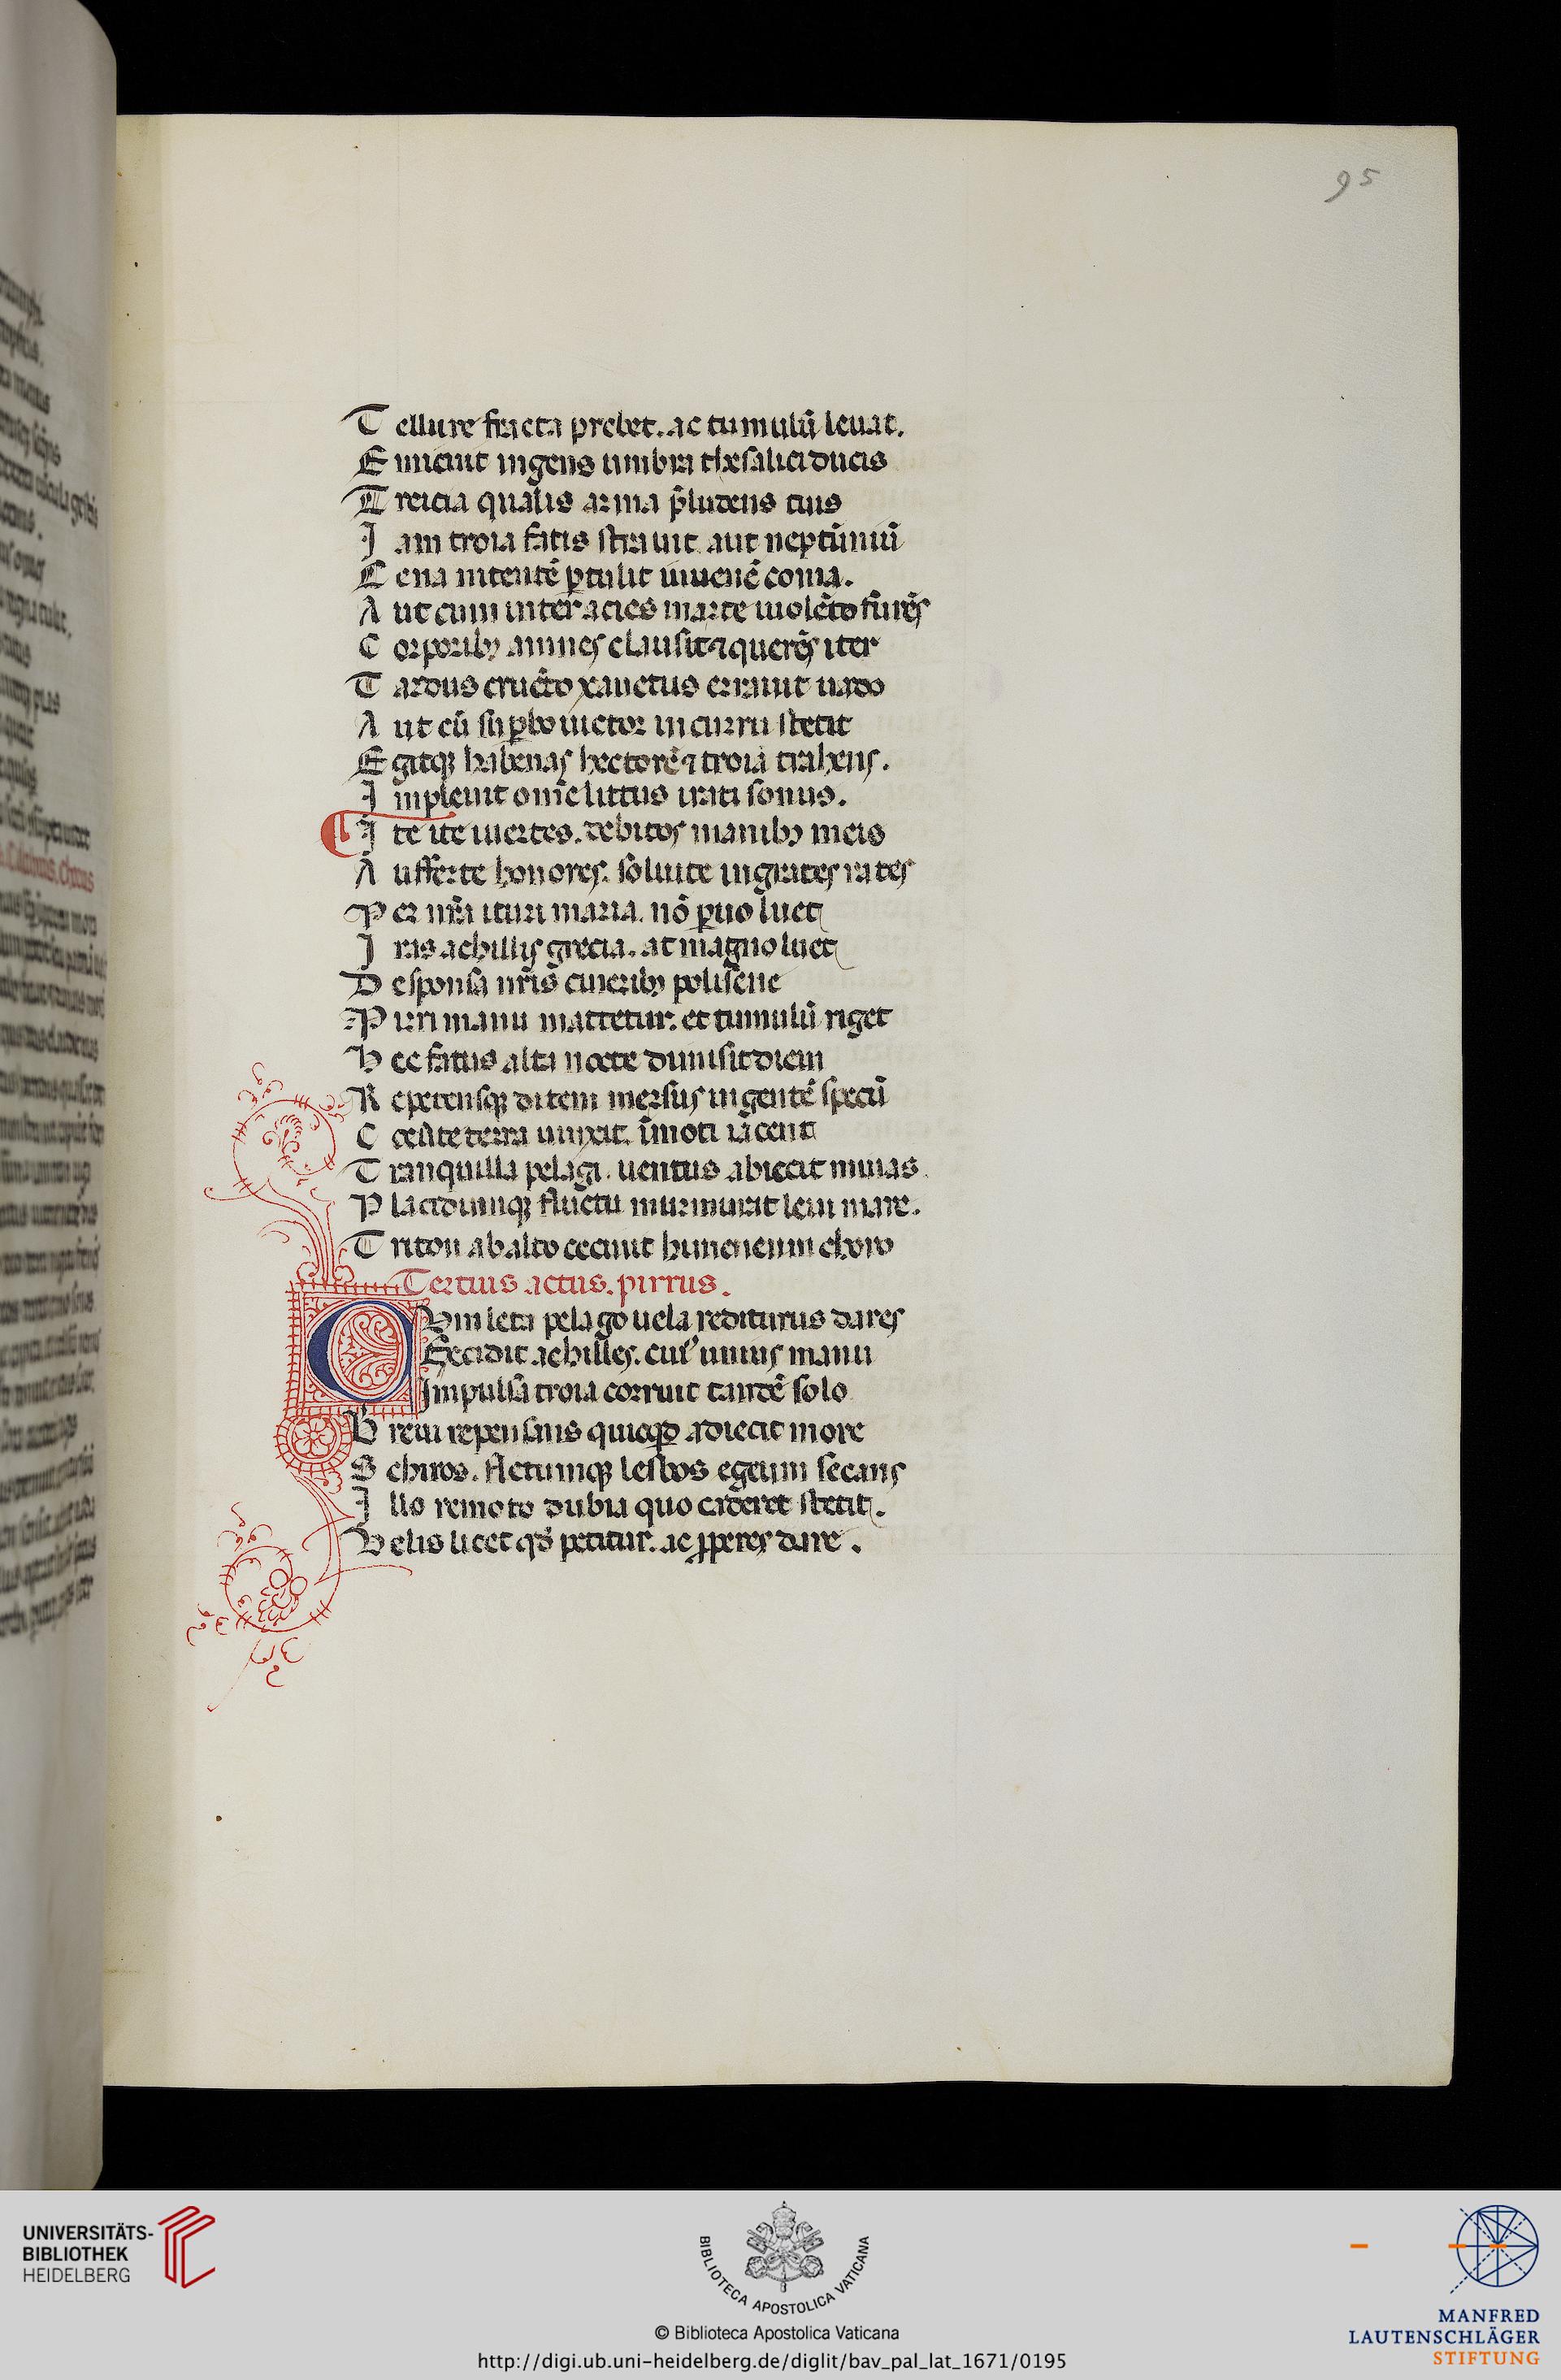 95
Tellure fracta prebet. ac tumulū leuat.
Emicuit ingens umbra thesalici ducis
Treicia qualis arma p̄ludens tuis
Iam troia fatis strauit aut neptūniū
Cena nitentē ꝑtulit iuuenē coma.
Aut cum inter acies marte uiolēto furēs
Corporibꝫ amnes clausit ⁊ querēs iter
Tardus cruēto xanctus errauit uado
Aut cū suꝑbo uictor in curru stetit
Egitqꝫ habenas hectorē ⁊ troiā trahens.
Impleuit omē littus irati sonus.
Ite ite inertes. debitos manibꝫ meis
Aufferte honores. soluite ingrates rates
Per nr̄a ituri maria. nō ꝑuo luet
Iras achillis grecia. at magno luet
Desponsa nr̄is cineribꝫ polisene
Pirri manu mattetur. et tumulū riget
Hec fatus alta nocte dimisit diem
Repetensqꝫ ditem mersus ingentē specū
Tranquilla pelagi. uentus abiecit minas.
Placidumqꝫ fluctu murmurat leni mare.
Triton ab alto cecinit himeneum choro
Tertius actus. pirrus.
Qvm leta pelago uela rediturus dares
Excidit achilles. cuiꝰ unius manu
Impulsa troia corruit tandē solo
Schiros.
lesbos egeum secans
Illo remoto dubia quo caderet stetit.
Velis licet qđ petitur. ac ꝓperes dare.
UNIVERSITÄTS-
BIBLIOTHEK
HEIDELBERG
BIBLIOTECA APOSTOLICA VATICANA
© Biblioteca Apostolica Vaticana
http://digi.ub.uni-heidelberg.de/diglit/bav_pal_lat_1671/0195
MANFRED
LAUTENSCHLÄGER
STIFTUNG